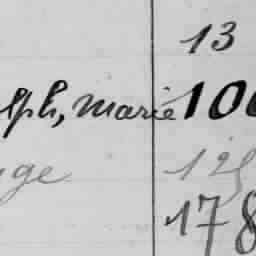 13
lph, Marie 100
ge 125
178